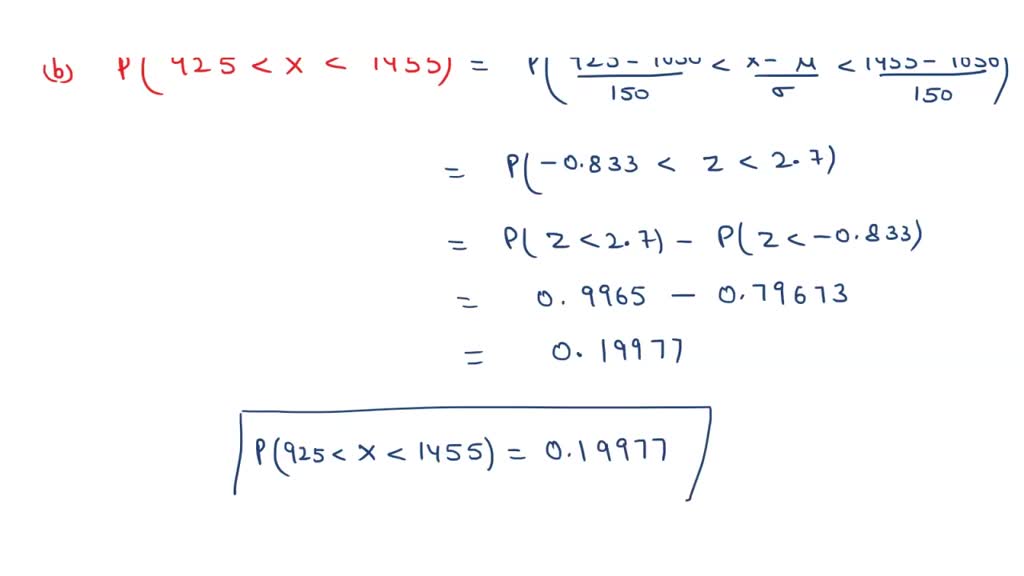 (b) P( 925 < x < 1455) = P( 925 - 1050 / 150 < x - μ / σ < 1455 - 1050 / 150 )
= P( -0.833 < z < 2.7)
= P( z < 2.7) - P( z < -0.833)
= 0.9965 - 0.79673
= 0.19977
P(925 < x < 1455) = 0.19977